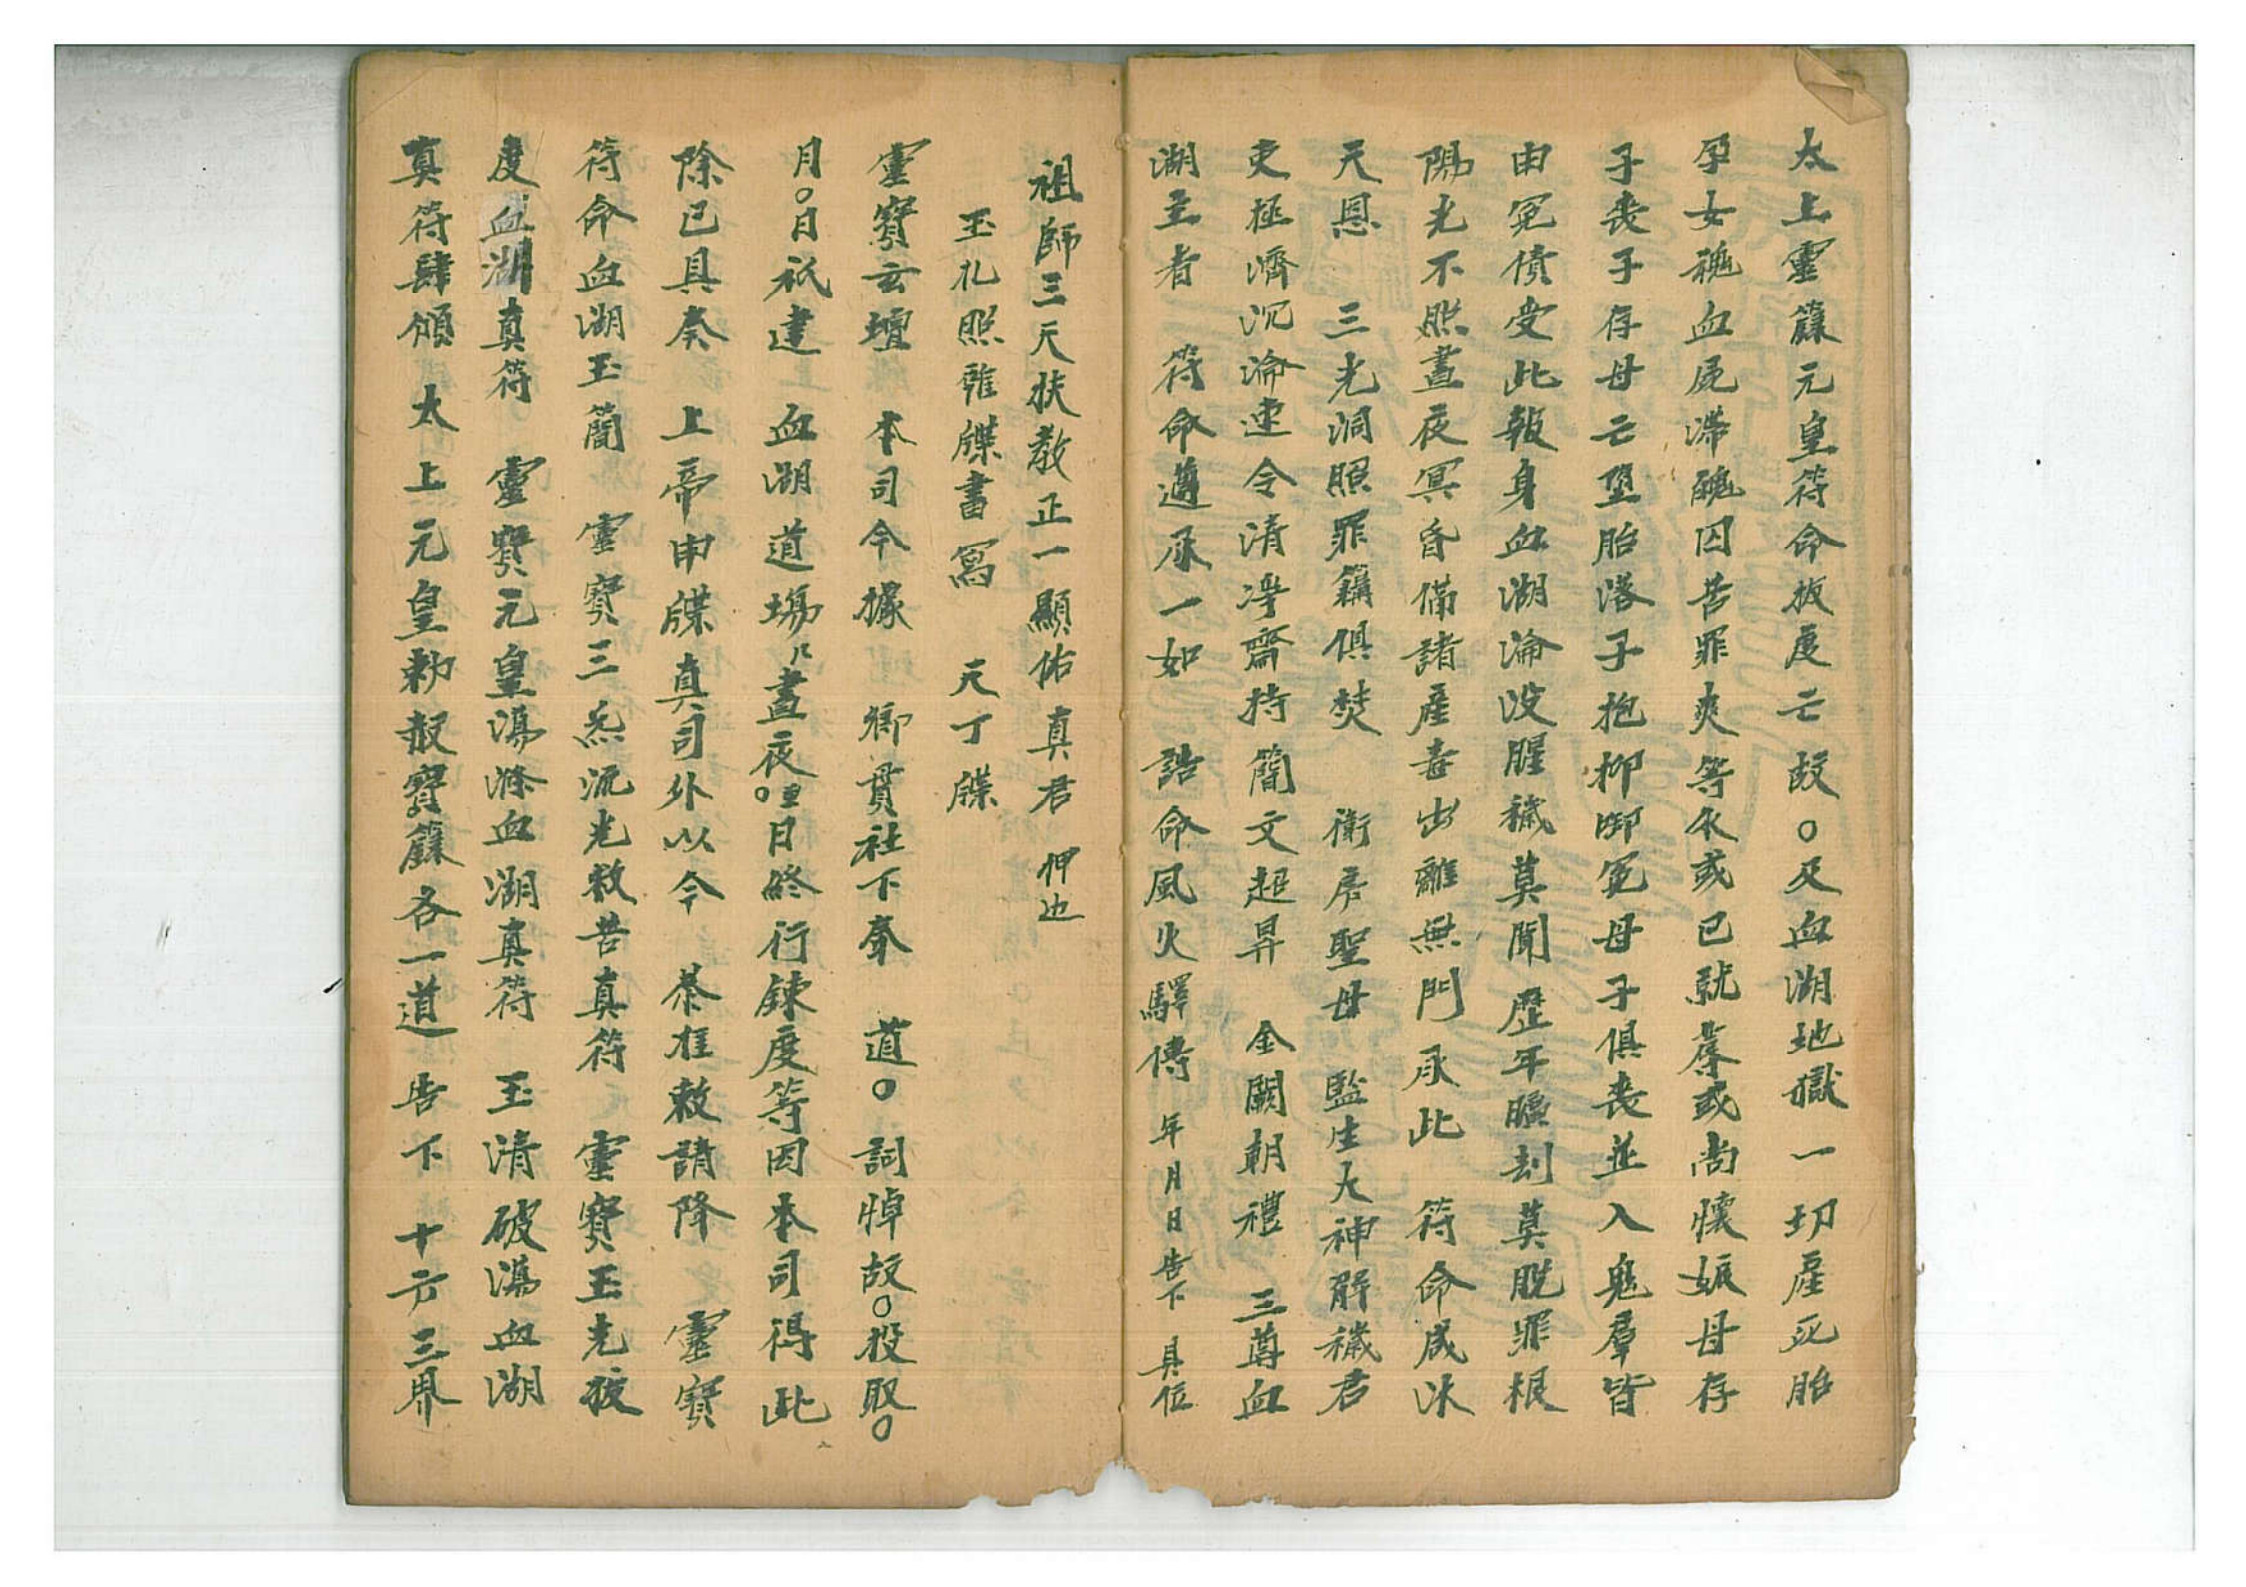 太上靈籙元皇符命拔度亡故〇及血湖地獄一切產死胎
孕女魂血屍滯魄囚苦罪爽等衆或已就蓐或尚懷娠母存
子喪子存母亡墮胎落子抱抑啣冤母子俱喪並入鬼羣皆
由冤債受此報身血湖淪没腥穢莫聞歷年曠刦莫脫罪根
陽光不照晝夜冥昏備諸產毒出離無門承此 符命咸沐
天恩 三光洞照罪籍俱焚 衛房聖母 監生大神解穢君
吏極濟沉淪速令清淨齋持簡文超昇 金闕朝禮 三尊血
湖主者 符命遵承一如 誥命風火驛傳 年月日告下 具位
祖師三天扶教正一顯佑真君 押迆
玉札照雜牒書寫 天丁牒
靈寳玄壇 本司今據 鄉貫社下奉 道〇 詞悼故〇投取〇
月〇日祇建 血湖道塲几晝夜〇重日終行鍊度等因本司得此
除已具奏 上帝申牒真司外以今 恭准敕請降 靈寳
符命血湖玉簡 靈寳三炁流光救苦真符 靈寳玉光拔
度血湖真符 靈寳元皇蕩滌血湖真符 玉清破蕩血湖
真符肆頒 太上元皇勅赦寳籙各一道 告下 十方三界